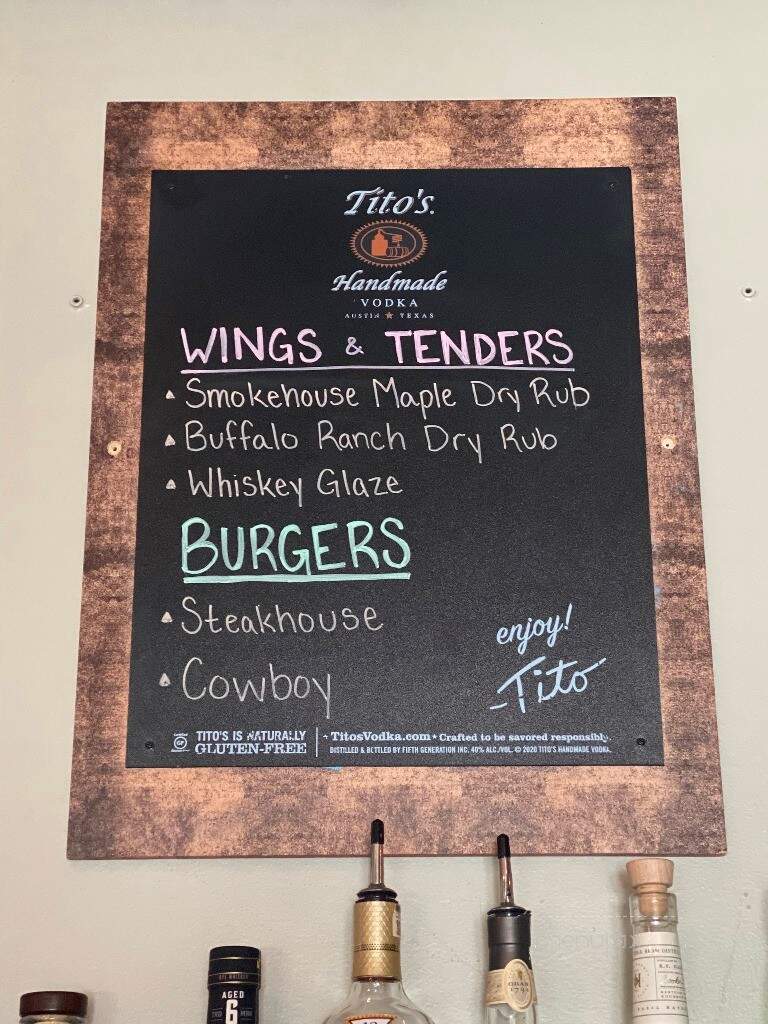 Tito's.
Handmade
VODKA
AUSTIN ★ TEXAS
WINGS & TENDERS
Smokehouse Maple Dry Rub
Buffalo Ranch Dry Rub
Whiskey Glaze
BURGERS
Steakhouse
Cowboy
enjoy!
-Tito
TITO'S IS NATURALLY
GLUTEN-FREE
TitosVodka.com ★ Crafted to be savored responsibly.
DISTILLED & BOTTLED BY FIFTH GENERATION INC. 40% ALC./VOL. © 2020 TITO'S HANDMADE VODKA.
AGED
6